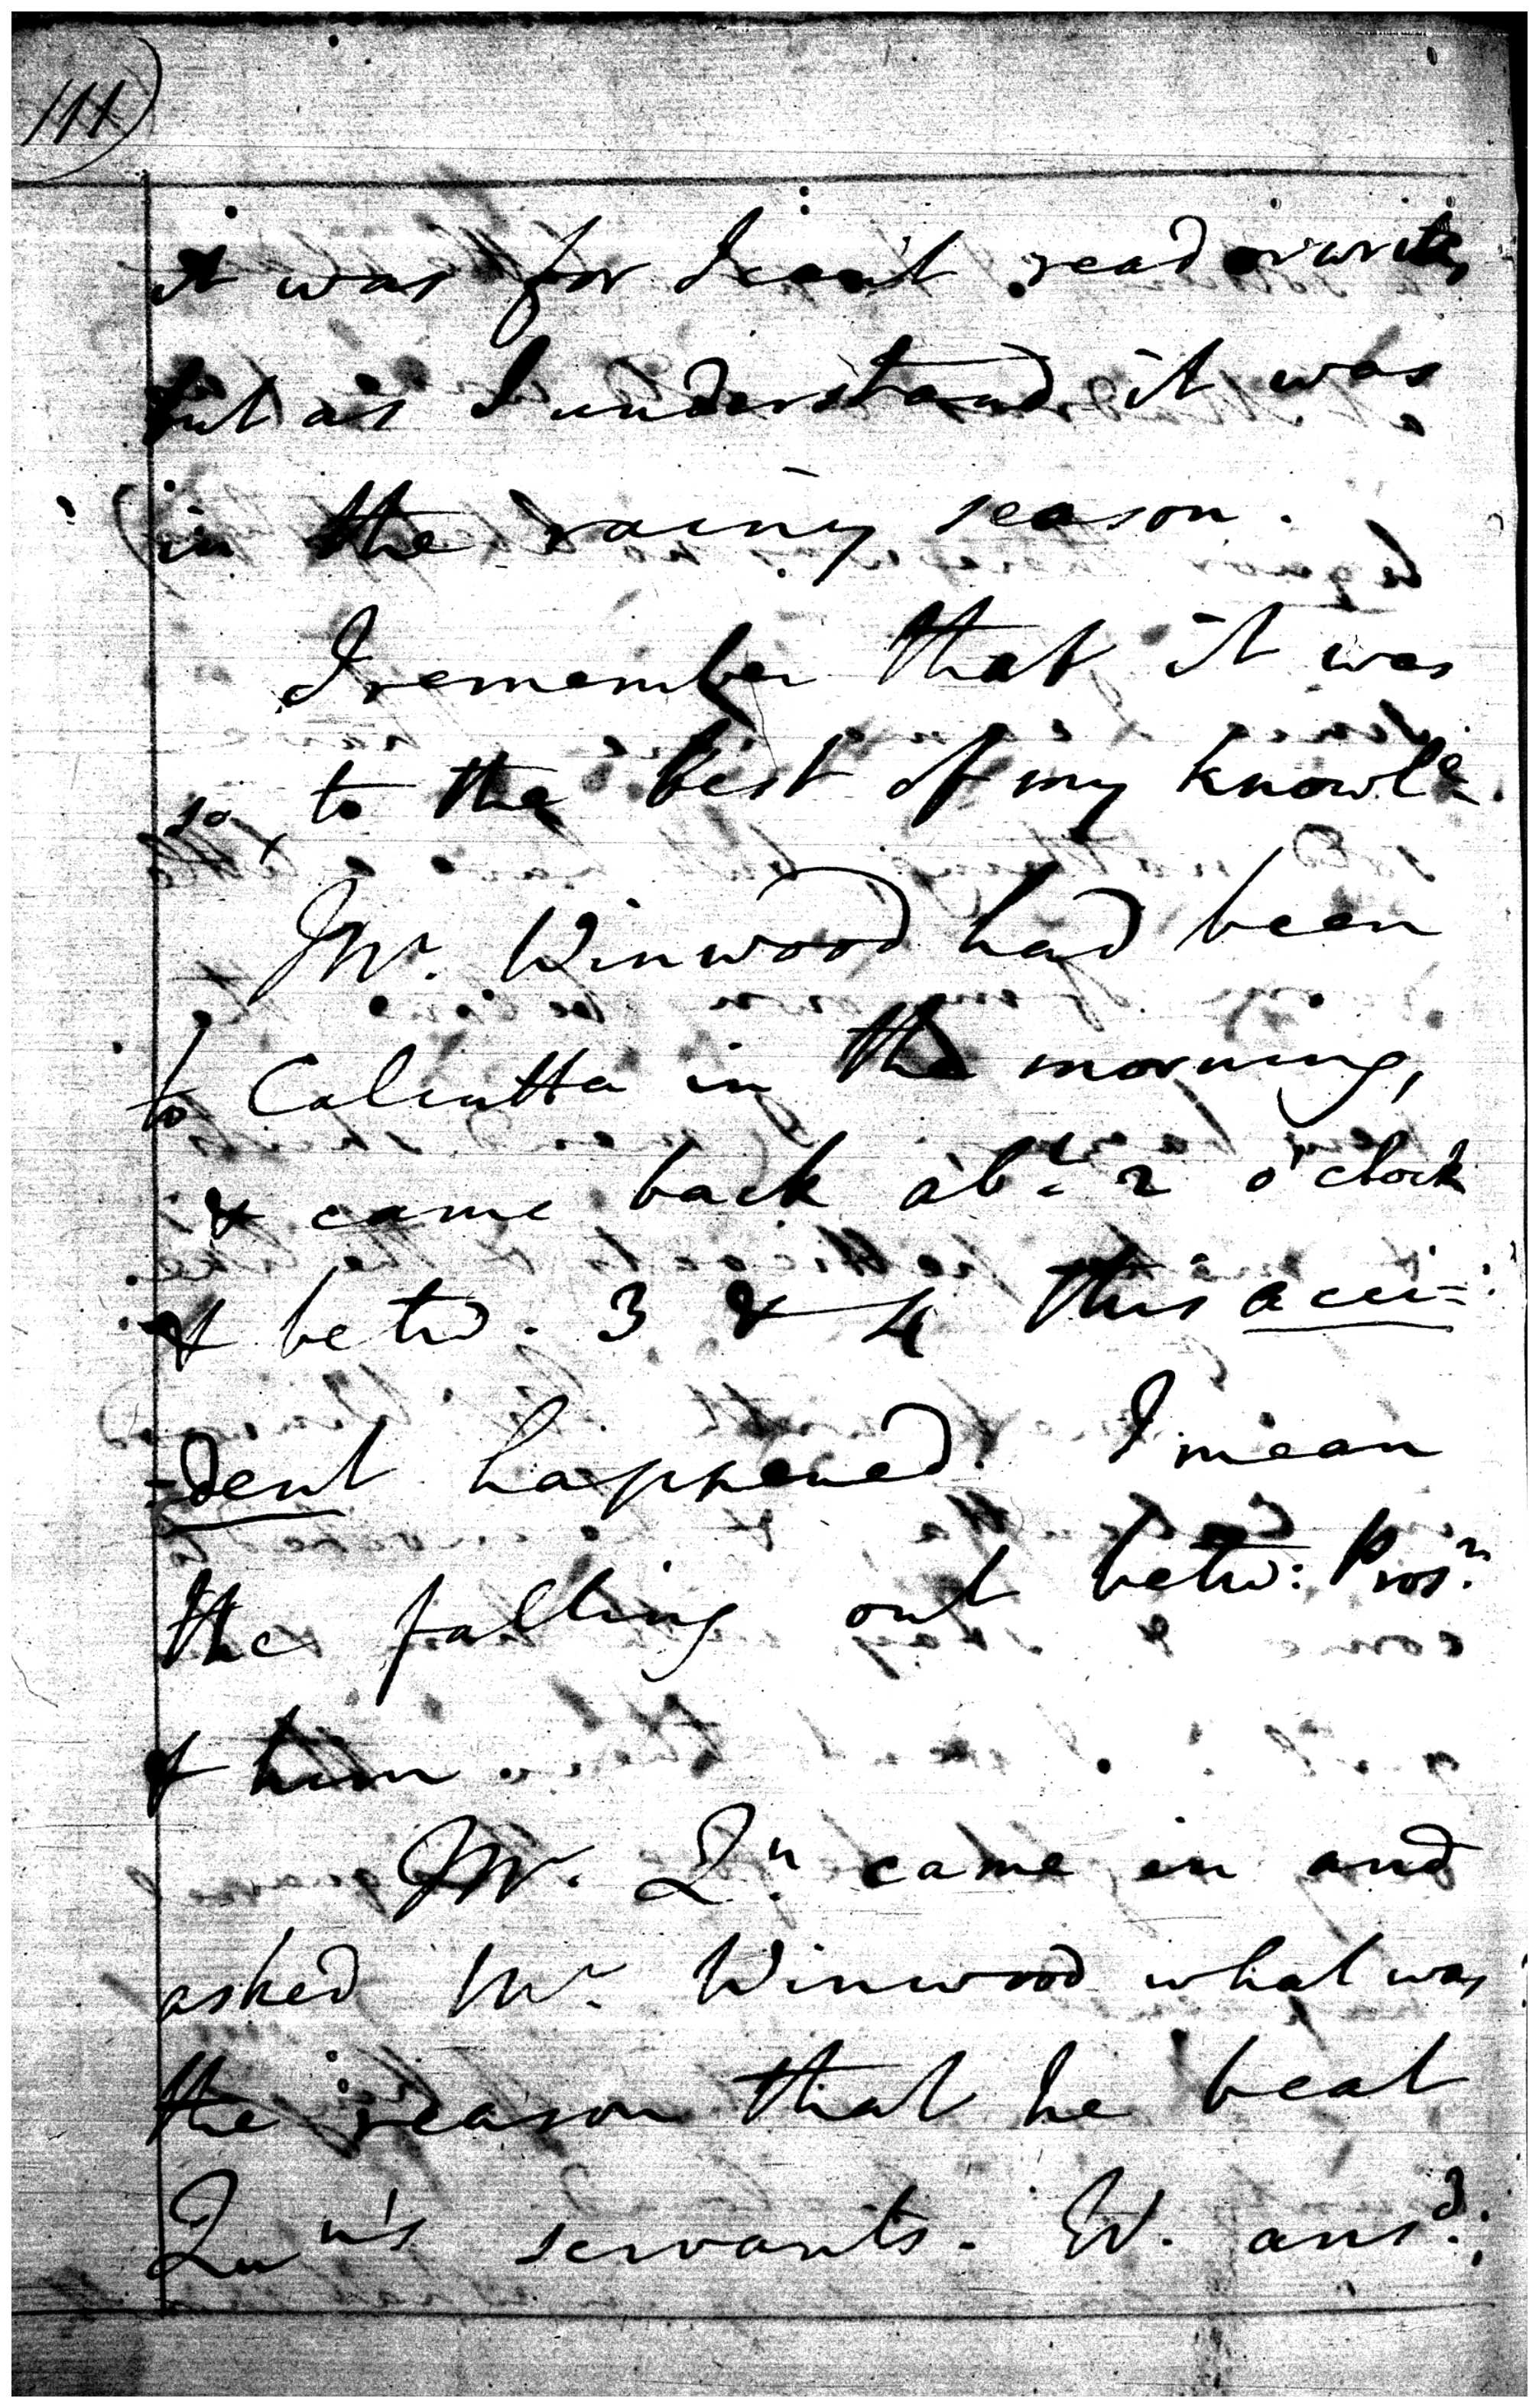 111)
it was for I can't read or write,
but as I understand it was
in the rainy season.
I remember that it was
so, to the best of my knowle.
Mr. Winwood had been
to Calcutta in the morning,
& came back abt. 2 o'clock
& betw. 3 & 4 this acci=
=dent happened. I mean
the falling out betw: Prosr.
& him.
Mr. Qn. came in and
asked Mr. Winwood what was
the reason that he beat
Qun's servants. W. ansd.;